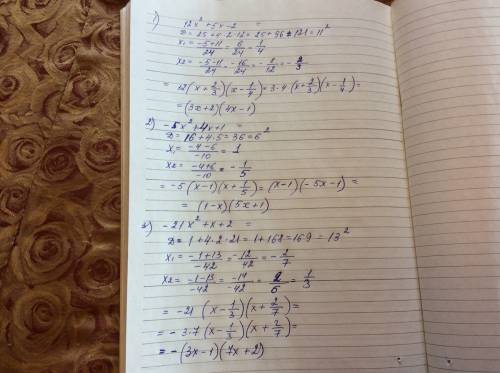 1)
12x² + 5x - 2 =
D = 25 + 4·2·12 = 25 + 96 = 121 = 11²
x₁ = (-5+11)/24 = 6/24 = 1/4
x2 = (-5-11)/24 = -16/24 = -8/12 = -2/3
= 12(x + 2/3)(x - 1/4) = 3·4(x + 2/3)(x - 1/4) =
= (3x+2)(4x-1)
2) -5x² + 4x + 1 =
D = 16 + 4·5 = 36 = 6²
x₁ = (-4-6)/-10 = 1
x2 = (-4+6)/-10 = -1/5
= -5(x-1)(x + 1/5) = (x-1)(-5x-1) =
= (1-x)(5x+1)
3) -21x² + x + 2 =
D = 1 + 4·2·21 = 1 + 168 = 169 = 13²
x₁ = (-1+13)/-42 = -12/42 = -2/7
x2 = (-1-13)/-42 = -14/-42 = 2/6 = 1/3
= -21(x - 1/3)(x + 2/7) =
= -3·7(x - 1/3)(x + 2/7) =
= -(3x-1)(7x+2)